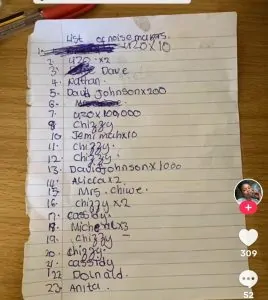 List of noise makers.
1. 420x10
2. 420 x2
3. Dave
4. Nathan.
5. David Johnsonx200
6.
7. 420x100,000
8 Chizzy
10 Jemimahx10
11. Chizzy.
12. Chizzy.
13. David Johnsonx1000
14. Aliciax2
15. Mrs. Chiwe.
16. chizzy x2
17. cassidy.
18. Michealx3
19. chizzy
20. chizzy.
21. cassidy
22. Dolnald.
23. Anita.
309
52